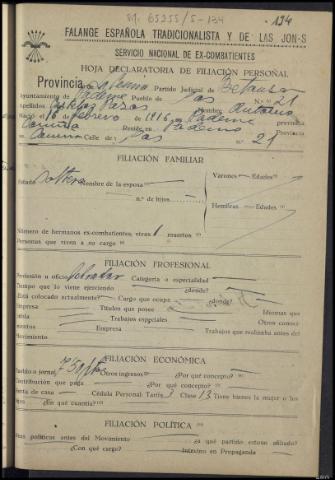 SM. 65255/S-134
134
FALANGE ESPAÑOLA TRADICIONALISTA Y DE LAS JON-S
SERVICIO NACIONAL DE EX-COMBATIENTES
HOJA DECLARATORIA DE FILIACIÓN PERSONAL
Provincia de Coruña Partido Judicial de Betanzos
Ayuntamiento de Paderne Pueblo de N.º 21
Apellidos Nombre Antonio
Nació el 16 febrero de 1916 en Paderne provincia
Coruña Reside en Paderne provincia
Coruña Calle de n.º 21
FILIACIÓN FAMILIAR
Estado Soltero Nombre de la esposa Varones — Edades
n.º de hijos
Hembras — Edades
Número de hermanos ex-combatientes, otros 1 muertos
Personas que viven a su cargo
FILIACIÓN PROFESIONAL
Profesión u oficio Labrador Categoría o especialidad
Tiempo que lo viene ejerciendo ¿dónde?
Está colocado actualmente? Cargo que ocupa ¿dónde?
Títulos que posee Idiomas que
Trabajos especiales Otros conoci-
mentos Empresa Trabajos que realizaba antes del
Movimiento
FILIACIÓN ECONÓMICA
Sueldo o jornal Otros ingresos ¿Por qué concepto?
Contribución que paga ¿Por qué concepto?
Renta de casa Cédula Personal: Tarifa 3 Clase 13 Tiene bienes la mujer o los
hijos ¿En qué cuantía?
FILIACIÓN POLÍTICA
Ideas políticas antes del Movimiento ¿A qué partido estuvo afiliado?
¿Con qué cargo? Intervino en Propaganda